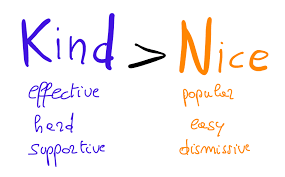 Kind > Nice
effective popular
hard easy
supportive dismissive